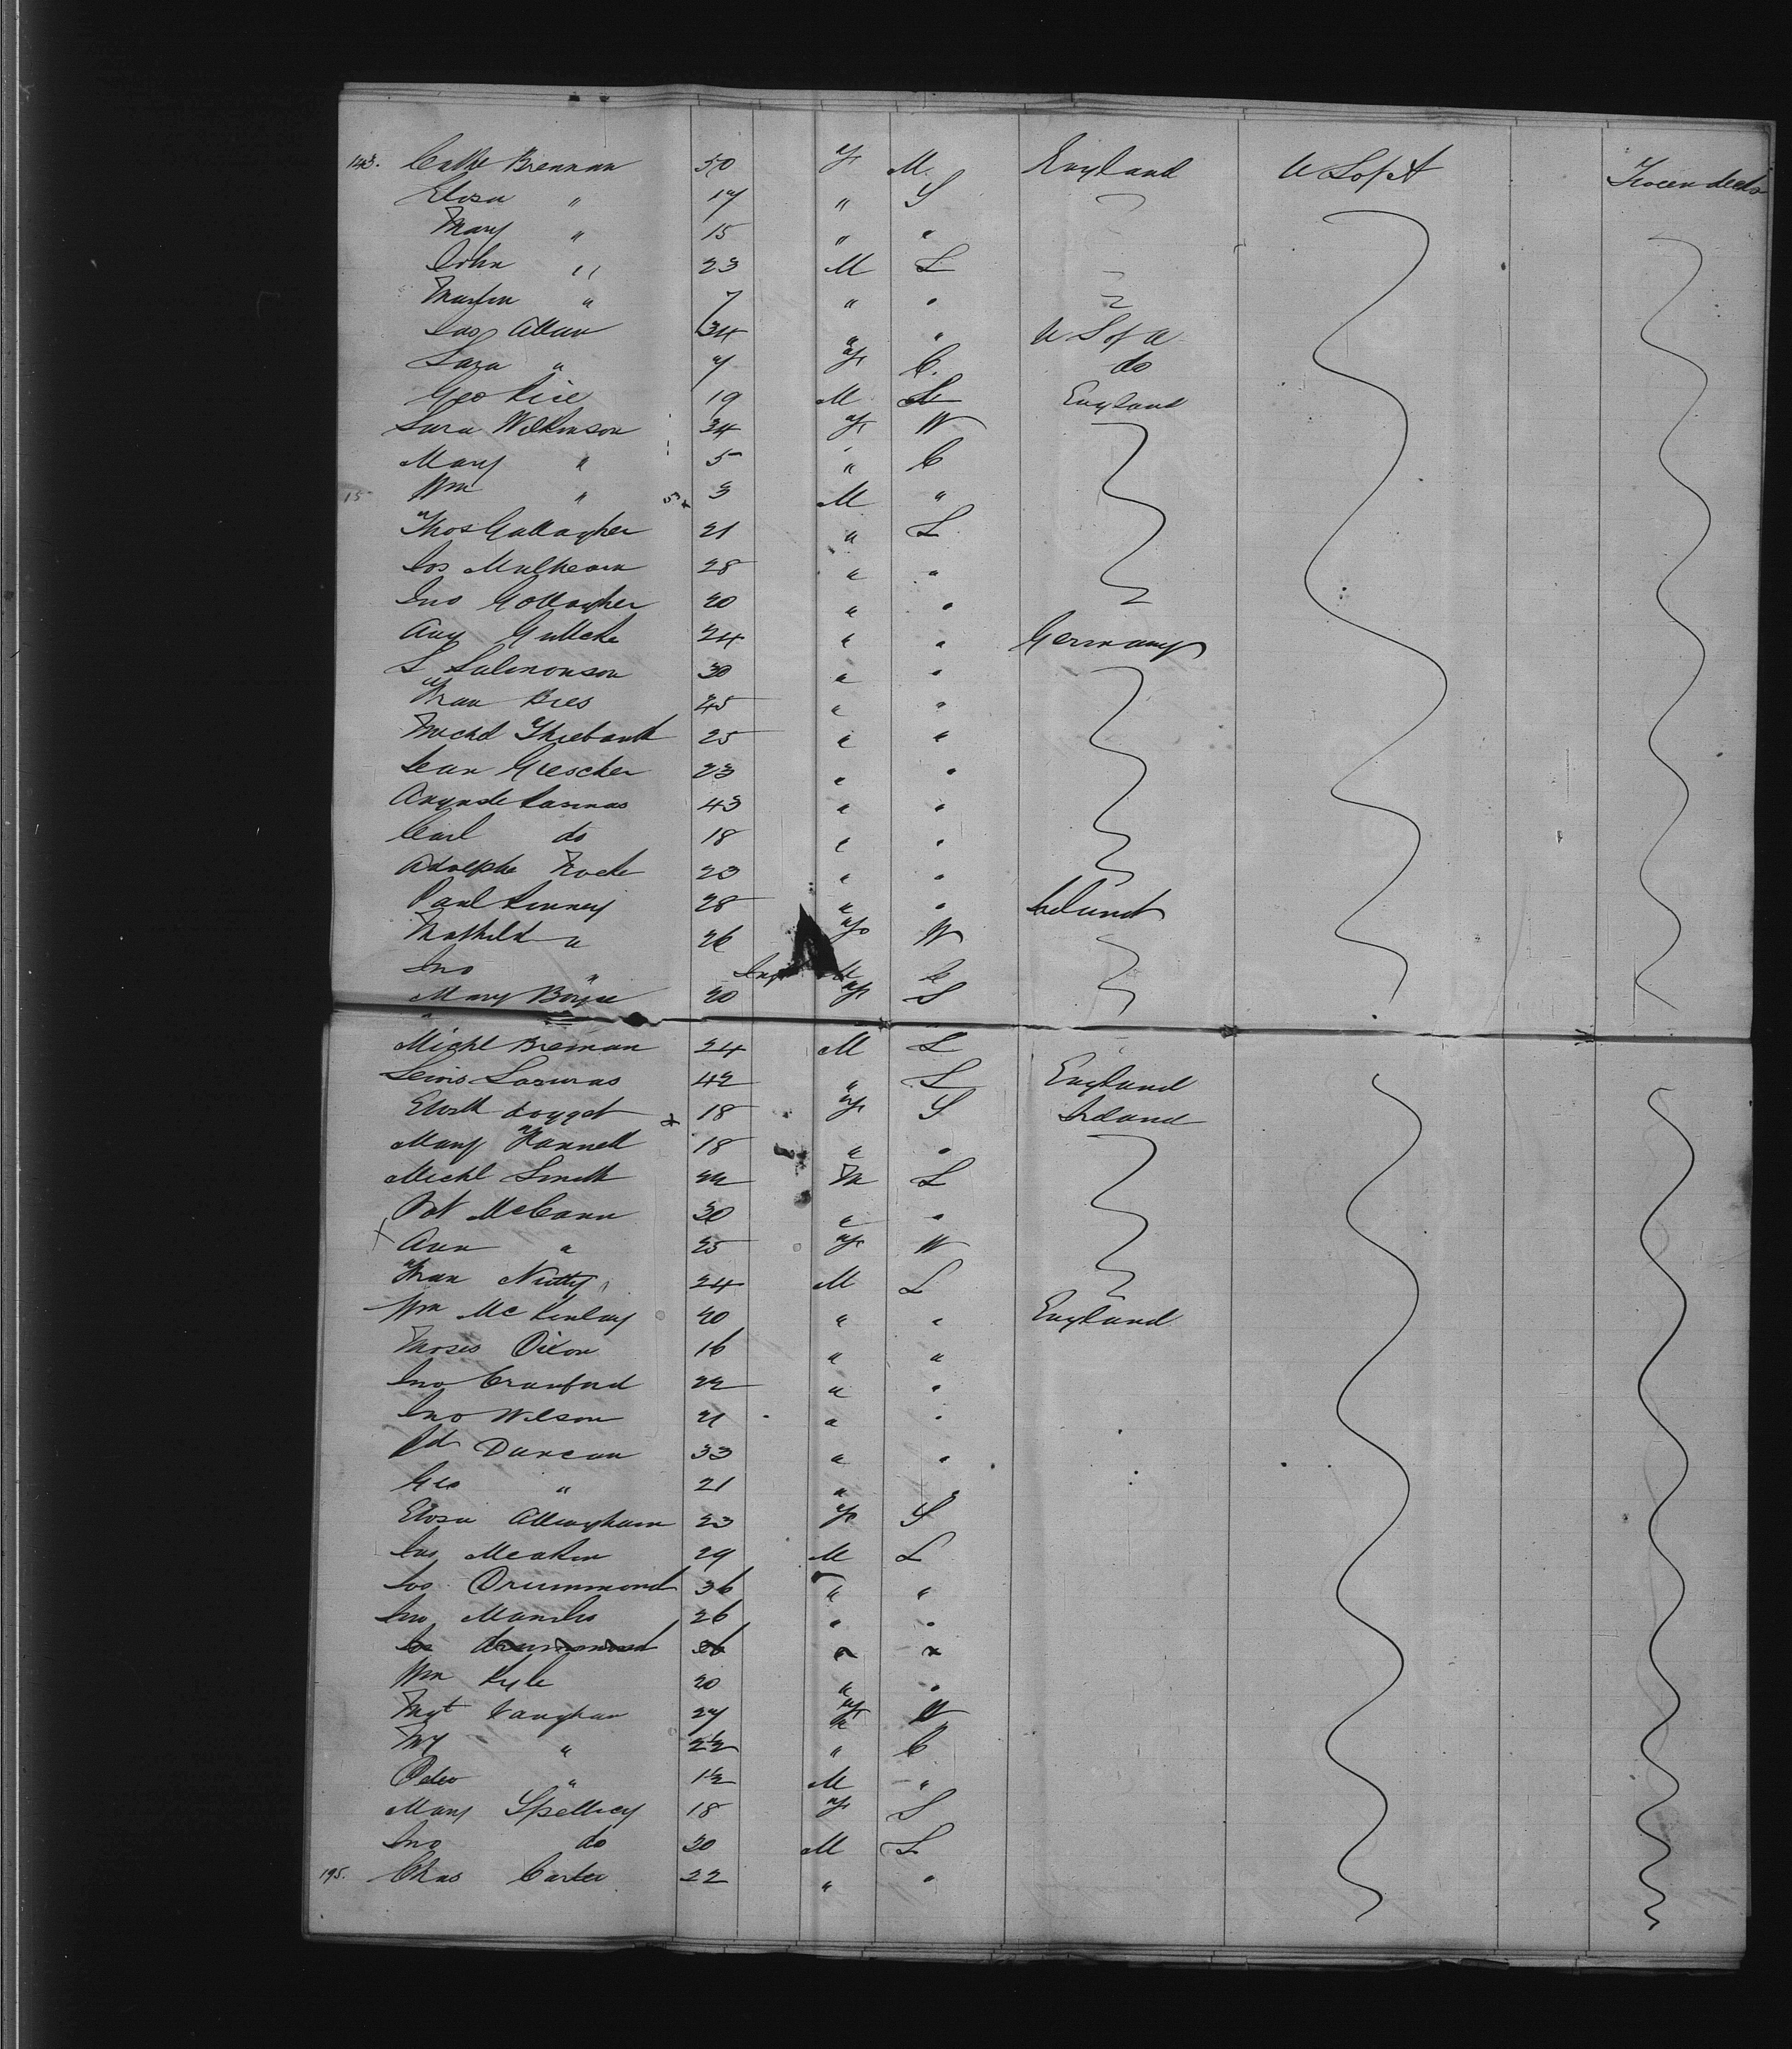 143. Cathe Brennan 50 F M. England U S of A 'Tween decks
Eliza " 17 " S
Mary " 15 " "
John " 23 M L
Martin " 7 " "
Jas Allan 34 " " U S of A
Sara " 7 F C. do
Geo Rice 19 M L England
Sara Wilkinson 34 F W
Mary " 5 " C
15 Wm " 3 M "
Thos Gallagher 21 " L
Jos Mulhearn 28 " "
Jno Gollagher 20 " "
Aug 24 " " Germany
S Salmonson 30 " "
Fran Bies 45 " "
Michel Thiebault 25 " "
Jean Grescher 23 " "
43 " "
Carl do 18 " "
Adolphe 23 " "
Paul Kenney 28 " " Ireland
Mathild " 26 F W
Jno " Inft M C
Mary Boyce 20 F S
Michl Brennan 24 M L
Lewis Lazurus 42 " L England
Elizth 18 F S Ireland
Mary Farrnell 18 " "
Michl Smith 22 M L
Pat McCann 30 " "
Ann " 25 F W
Fran Nutty 24 M L
Wm McKinlay 20 " " England
Moses Dixon 16 " "
Jno Crawford 22 " "
Jno Wilson 21 " "
Rd Duncan 33 " "
Geo " 21 " "
Eliza Allingham 23 F S
Jas Meakin 29 M L
Jos Drummond 36 " "
Jno 26 " "
Jos Drummond 36 " "
Wm Kyle 20 " "
Mgt Vaughan 27 F W
My " 2½ " C
Peter " 1½ M "
Mary Spellicy 18 F S
Jno do 20 M L
195. Chas Carter 22 " "